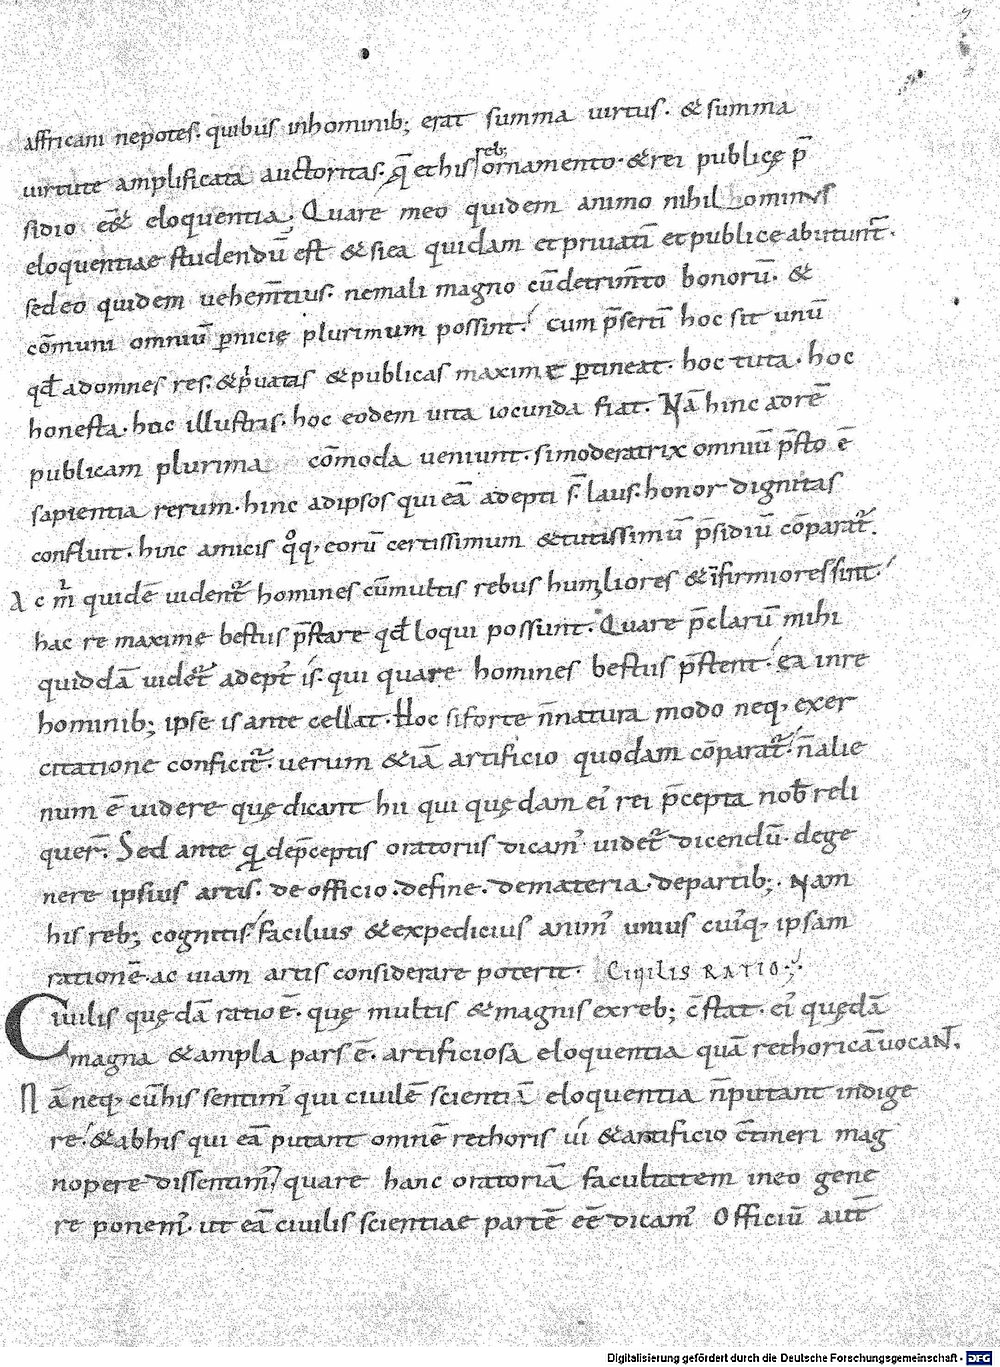 affricani nepotes. quibus inhominib; erat summa uirtus. & summa
uirtute amplificata auctoritas. q̄ et his reb; ornamento. & rei publicę p̄
sidio eēt eloquentia. Quare meo quidem animo nihil hominus
eloquentiae studendū est & si ea quidam et priuatī et publice abutunt᷑.
sed eo quidem uehem̄tius. ne mali magno cū detrim̄to bonorū. &
cōmuni omniū ꝑnicię plurimum possint. Cum p̄sertī hoc sit unū
qđ ad omnes res. & p̍uatas & publicas maxime ꝑtineat. hoc tuta. hoc
honesta. hac illustris. hoc eodem uita iocunda fiat. Nā hinc ad rē
publicam plurima cōmoda ueniunt. si moderatrix omniū p̄sto ē
sapientia rerum. hinc ad ipsos qui eā adepti s̄ laus. honor dignitas
confluit. hinc amicis q̊q, eorū certissimum & tutissimū p̄sidiū cōparat᷑.
Ac m̍ quidē uident᷑ homines cū multis rebus humiliores & īfirmiores sint.
hac re maxime bestiis p̄stare qđ loqui possunt. Quare p̄clarū mihi
quiddā uidet᷑ adept᾽ is. qui quare homines bestiis p̄stent. ea inre
hominib; ipse is ante cellat. Hoc si forte n̄ natura modo neq, exer
citatione conficit᷑. uerum & iā artificio quodam cōparat᷑. n̄ alie
num ē uidere quę dicant hii qui quędam ei᾽ rei p̄cepta nob̄ reli
quer̄. Sed ante q̄ de p̄ceptis oratoriis dicam᾽ uidet᷑ dicendū. de ge
nere ipsius artis. de officio. de fine. de materia. de partib;. Nam
his reb; cognitis facilius & expedicius anim᾽ unius cui᾽q, ipsam
rationē. ac uiam artis considerare poterit. Ciuilis RATIO
Ciuilis quędā ratio ē. quę multis & magnis ex reb; c̄stat. ei᾽ quędā
magna & ampla pars ē. artificiosa eloquentia quā rethoricā uocaNT.
Nā neq, cū his sentim᾽ qui ciuilē scientiā eloquentia n̄ putant indige
re. & ab his qui eā putant omnē rethoris ui & artificio c̄tineri mag
nopere dissentim᾽. quare hanc oratoriā facultatem in eo gene
re ponem᾽. ut eā ciuilis scientiae partē eē dicam᾽ Officiū aut̄
Digitalisierung gefördert durch die Deutsche Forschungsgemeinschaft - DFG